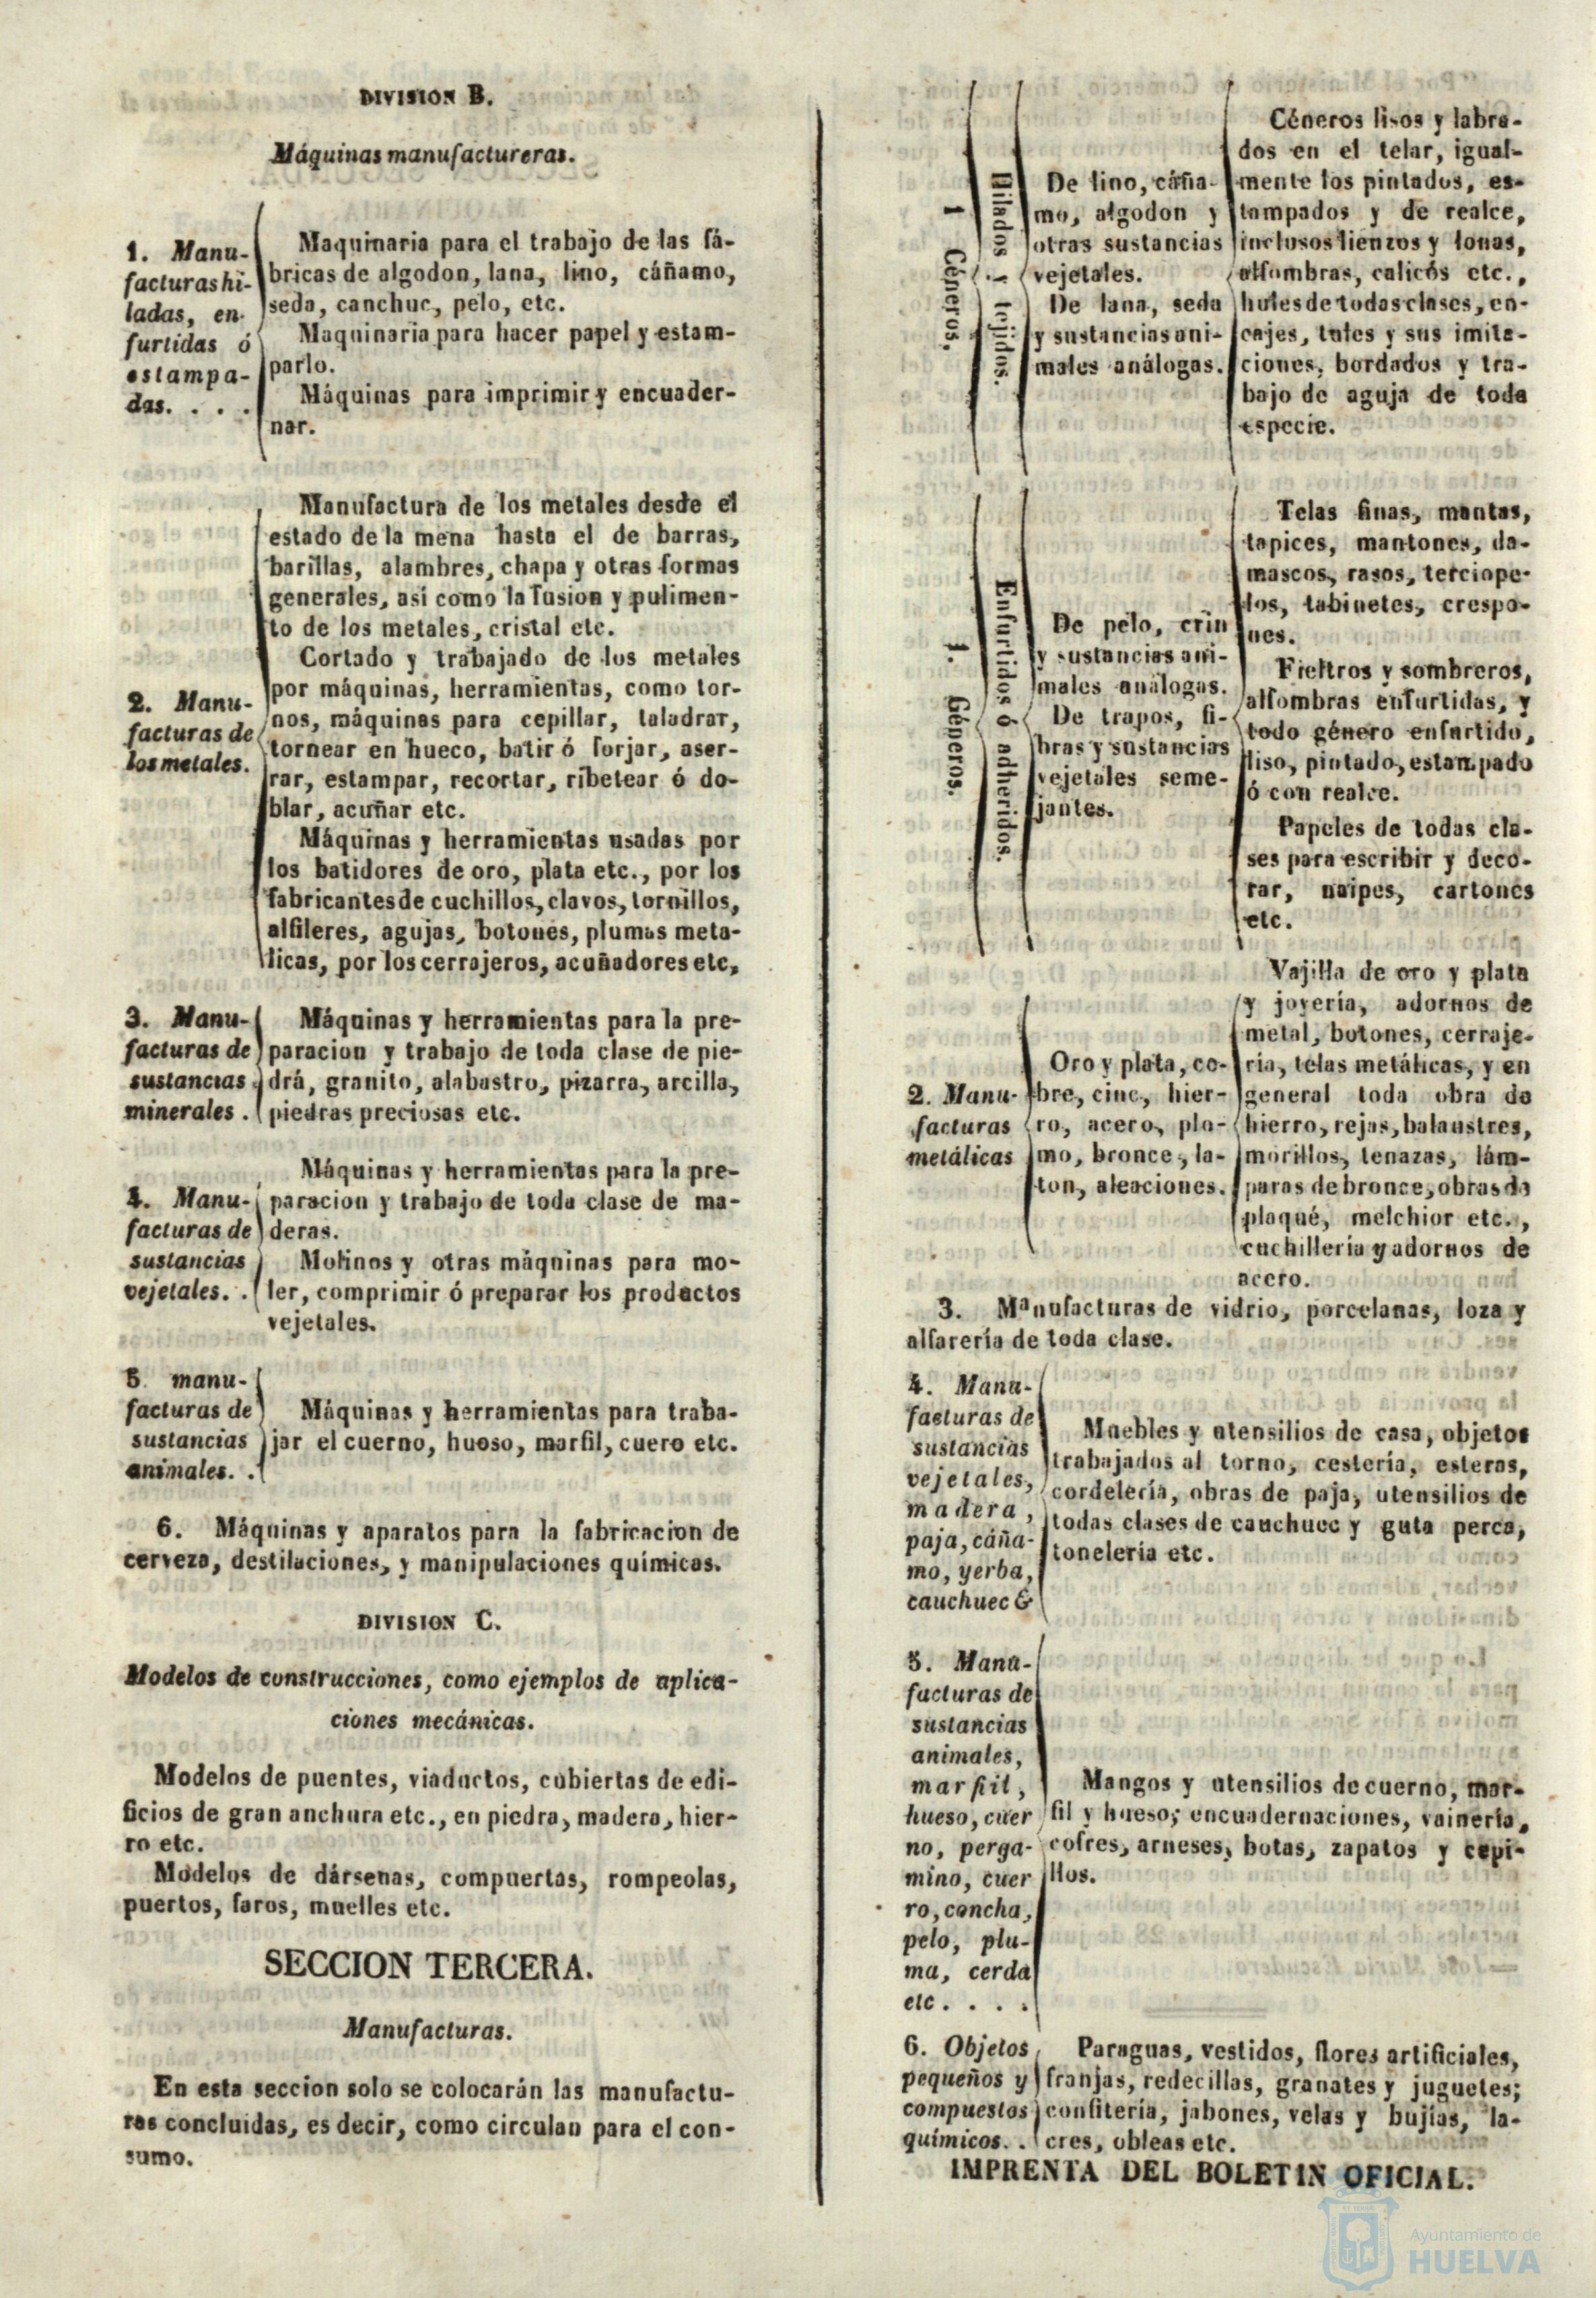 DIVISION B.
Máquinas manufactureras.
1. Manu-
facturas hi-
ladas, en-
furtidas ó
estampa-
das. . . .
Maquinaria para el trabajo de las fá-
bricas de algodon, lana, lino, cáñamo,
seda, canchuc, pelo, etc.
Maquinaria para hacer papel y estam-
parlo.
Máquinas para imprimir y encuader-
nar.
2. Manu-
facturas de
los metales.
Manufactura de los metales desde el
estado de la mena hasta el de barras,
barillas, alambres, chapa y otras formas
generales, así como la fusion y pulimen-
to de los metales, cristal etc.
Cortado y trabajado de los metales
por máquinas, herramientas, como tor-
nos, máquinas para cepillar, taladrar,
tornear en hueco, batir ó forjar, aser-
rar, estampar, recortar, ribetear ó do-
blar, acuñar etc.
Máquinas y herramientas usadas por
los batidores de oro, plata etc., por los
fabricantes de cuchillos, clavos, tornillos,
alfileres, agujas, botones, plumas meta-
licas, por los cerrajeros, acuñadores etc,
3. Manu-
facturas de
sustancias
minerales .
Máquinas y herramientas para la pre-
paracion y trabajo de toda clase de pie-
drá, granito, alabastro, pizarra, arcilla,
piedras preciosas etc.
4. Manu-
facturas de
sustancias
vejetales. .
Máquinas y herramientas para la pre-
paracion y trabajo de toda clase de ma-
deras.
Molinos y otras máquinas para mo-
ler, comprimir ó preparar los productos
vejetales.
5 manu-
facturas de
sustancias
animales. .
Máquinas y herramientas para traba-
jar el cuerno, hueso, marfil, cuero etc.
6. Máquinas y aparatos para la fabricacion de
cerveza, destilaciones, y manipulaciones químicas.
DIVISION C.
Modelos de construcciones, como ejemplos de aplica-
ciones mecánicas.
Modelos de puentes, viaductos, cubiertas de edi-
ficios de gran anchura etc., en piedra, madera, hier-
ro etc.
Modelos de dársenas, compuertas, rompeolas,
puertos, faros, muelles etc.
SECCION TERCERA.
Manufacturas.
En esta seccion solo se colocarán las manufactu-
ras concluidas, es decir, como circulan para el con-
sumo.
1 Géneros.
Hilados y tejidos.
De lino, cáña-
mo, algodon y
otras sustancias
vejetales.
De lana, seda
y sustancias ani-
males análogas.
Géneros lisos y labra-
dos en el telar, igual-
mente los pintados, es-
tampados y de realce,
inclusos lienzos y lonas,
alfombras, calicós etc.,
hules de todas clases, en-
cajes, tules y sus imita-
ciones, bordados y tra-
bajo de aguja de toda
especie.
1. Géneros.
Enfurtidos ó adheridos.
De pelo, crin
y sustancias ani-
males análogas.
De trapos, fi-
bras y sustancias
vejetales seme-
jantes.
Telas finas, mantas,
tapices, mantones, da-
mascos, rasos, terciope-
los, tabinetes, crespo-
nes.
Fieltros y sombreros,
alfombras enfurtidas, y
todo género enfurtido,
liso, pintado, estampado
ó con realce.
Papeles de todas cla-
ses para escribir y deco-
rar, naipes, cartones
etc.
2. Manu-
facturas
metálicas
Oro y plata, co-
bre, cinc, hier-
ro, acero, plo-
mo, bronce, la-
ton, aleaciones.
Vajilla de oro y plata
y joyería, adornos de
metal, botones, cerraje-
ria, telas metálicas, y en
general toda obra de
hierro, rejas, balaustres,
morillos, tenazas, lám-
paras de bronce, obras de
plaqué, melchior etc.,
cuchillería y adornos de
acero.
3. Manufacturas de vidrio, porcelanas, loza y
alfarería de toda clase.
4. Manu-
facturas de
sustancias
vejetales,
madera,
paja, cáña-
mo, yerba,
cauchuec &
Muebles y utensilios de casa, objetos
trabajados al torno, cestería, esteras,
cordelería, obras de paja, utensilios de
todas clases de cauchuec y guta perca,
tonelería etc.
5. Manu-
facturas de
sustancias
animales,
marfil,
hueso, cuer
no, perga-
mino, cuer
ro, concha,
pelo, plu-
ma, cerda
etc . . . .
Mangos y utensilios de cuerno, mar-
fil y hueso; encuadernaciones, vainería,
cofres, arneses, botas, zapatos y cepi-
llos.
6. Objetos
pequeños y
compuestos
químicos. .
Paraguas, vestidos, flores artificiales,
franjas, redecillas, granates y juguetes;
confitería, jabones, velas y bujías, la-
cres, obleas etc.
IMPRENTA DEL BOLETIN OFICIAL.
Ayuntamiento de
HUELVA